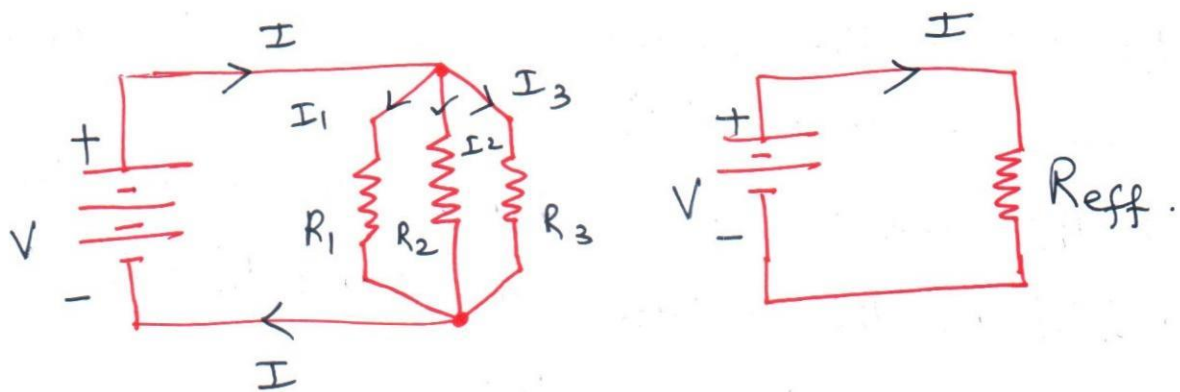 I
I₁
I₂
I₃
+
V
-
R₁
R₂
R₃
I
I
+
V
-
Reff.